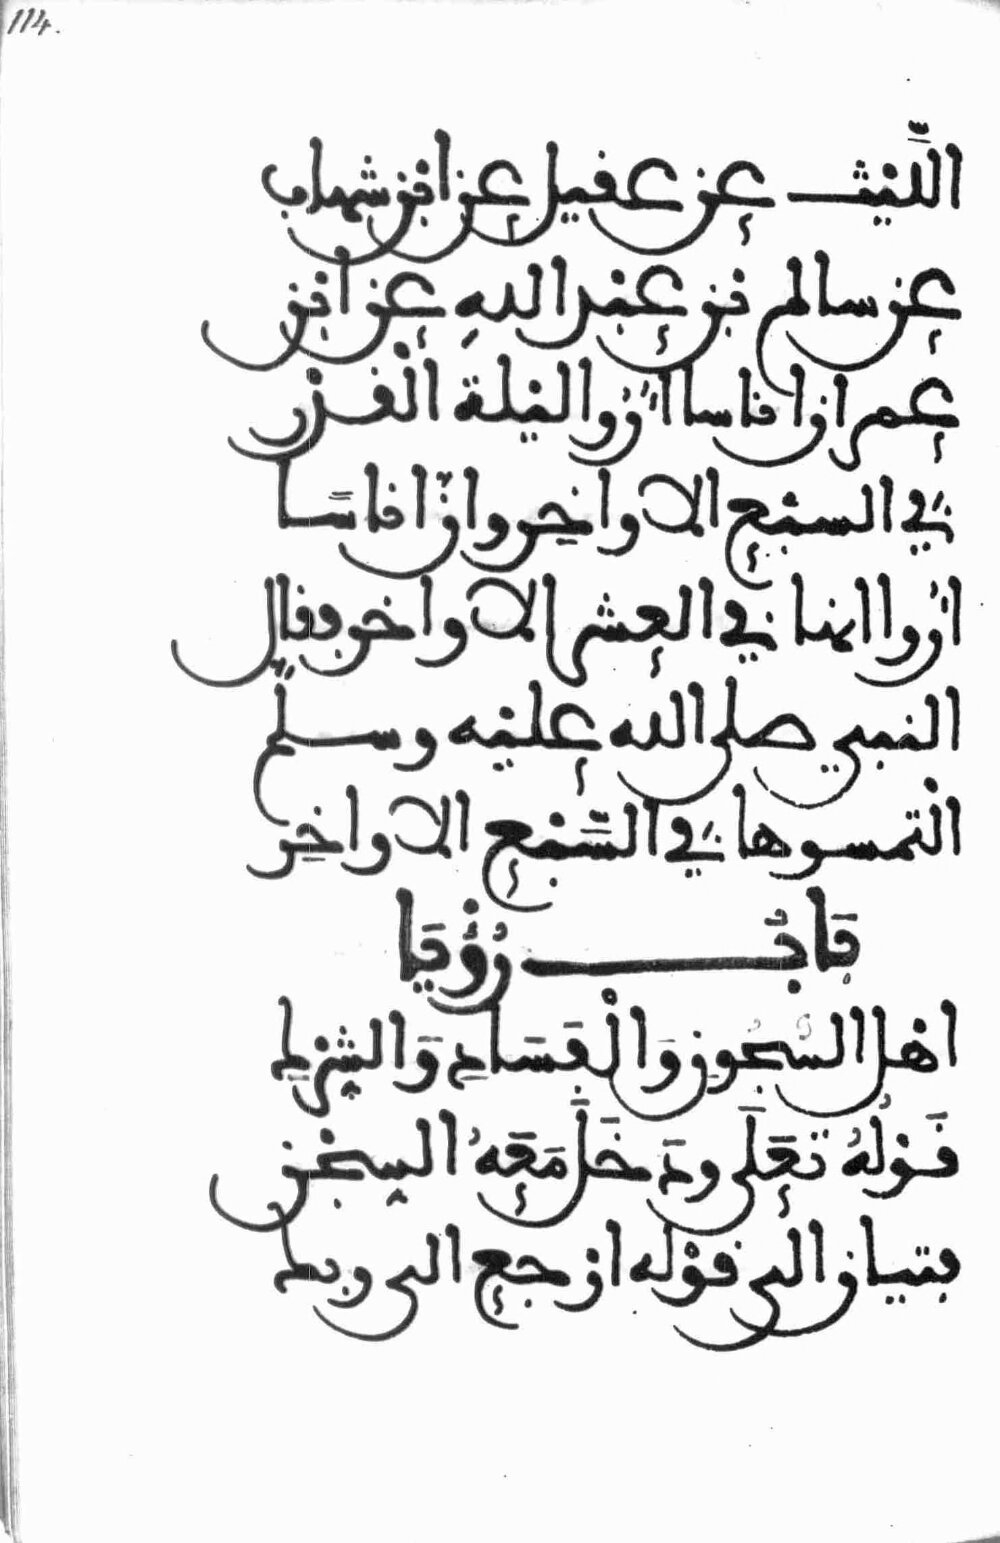 114.
الليث عن عقيل عن ابن شهاب
عن سالم بن عبد الله عن ابن
عمر ان اناسا اروا ليلة القدر
في السبع الاواخر وان اناسا
اروا انها في العشر الاواخر فقال
النبي صلى الله عليه وسلم
التمسوها في السبع الاواخر
باب رؤيا
اهل السجون والفساد والشرك
قوله تعلى ودخل معه السجن
فتيان الى قوله ارجع الى ربك